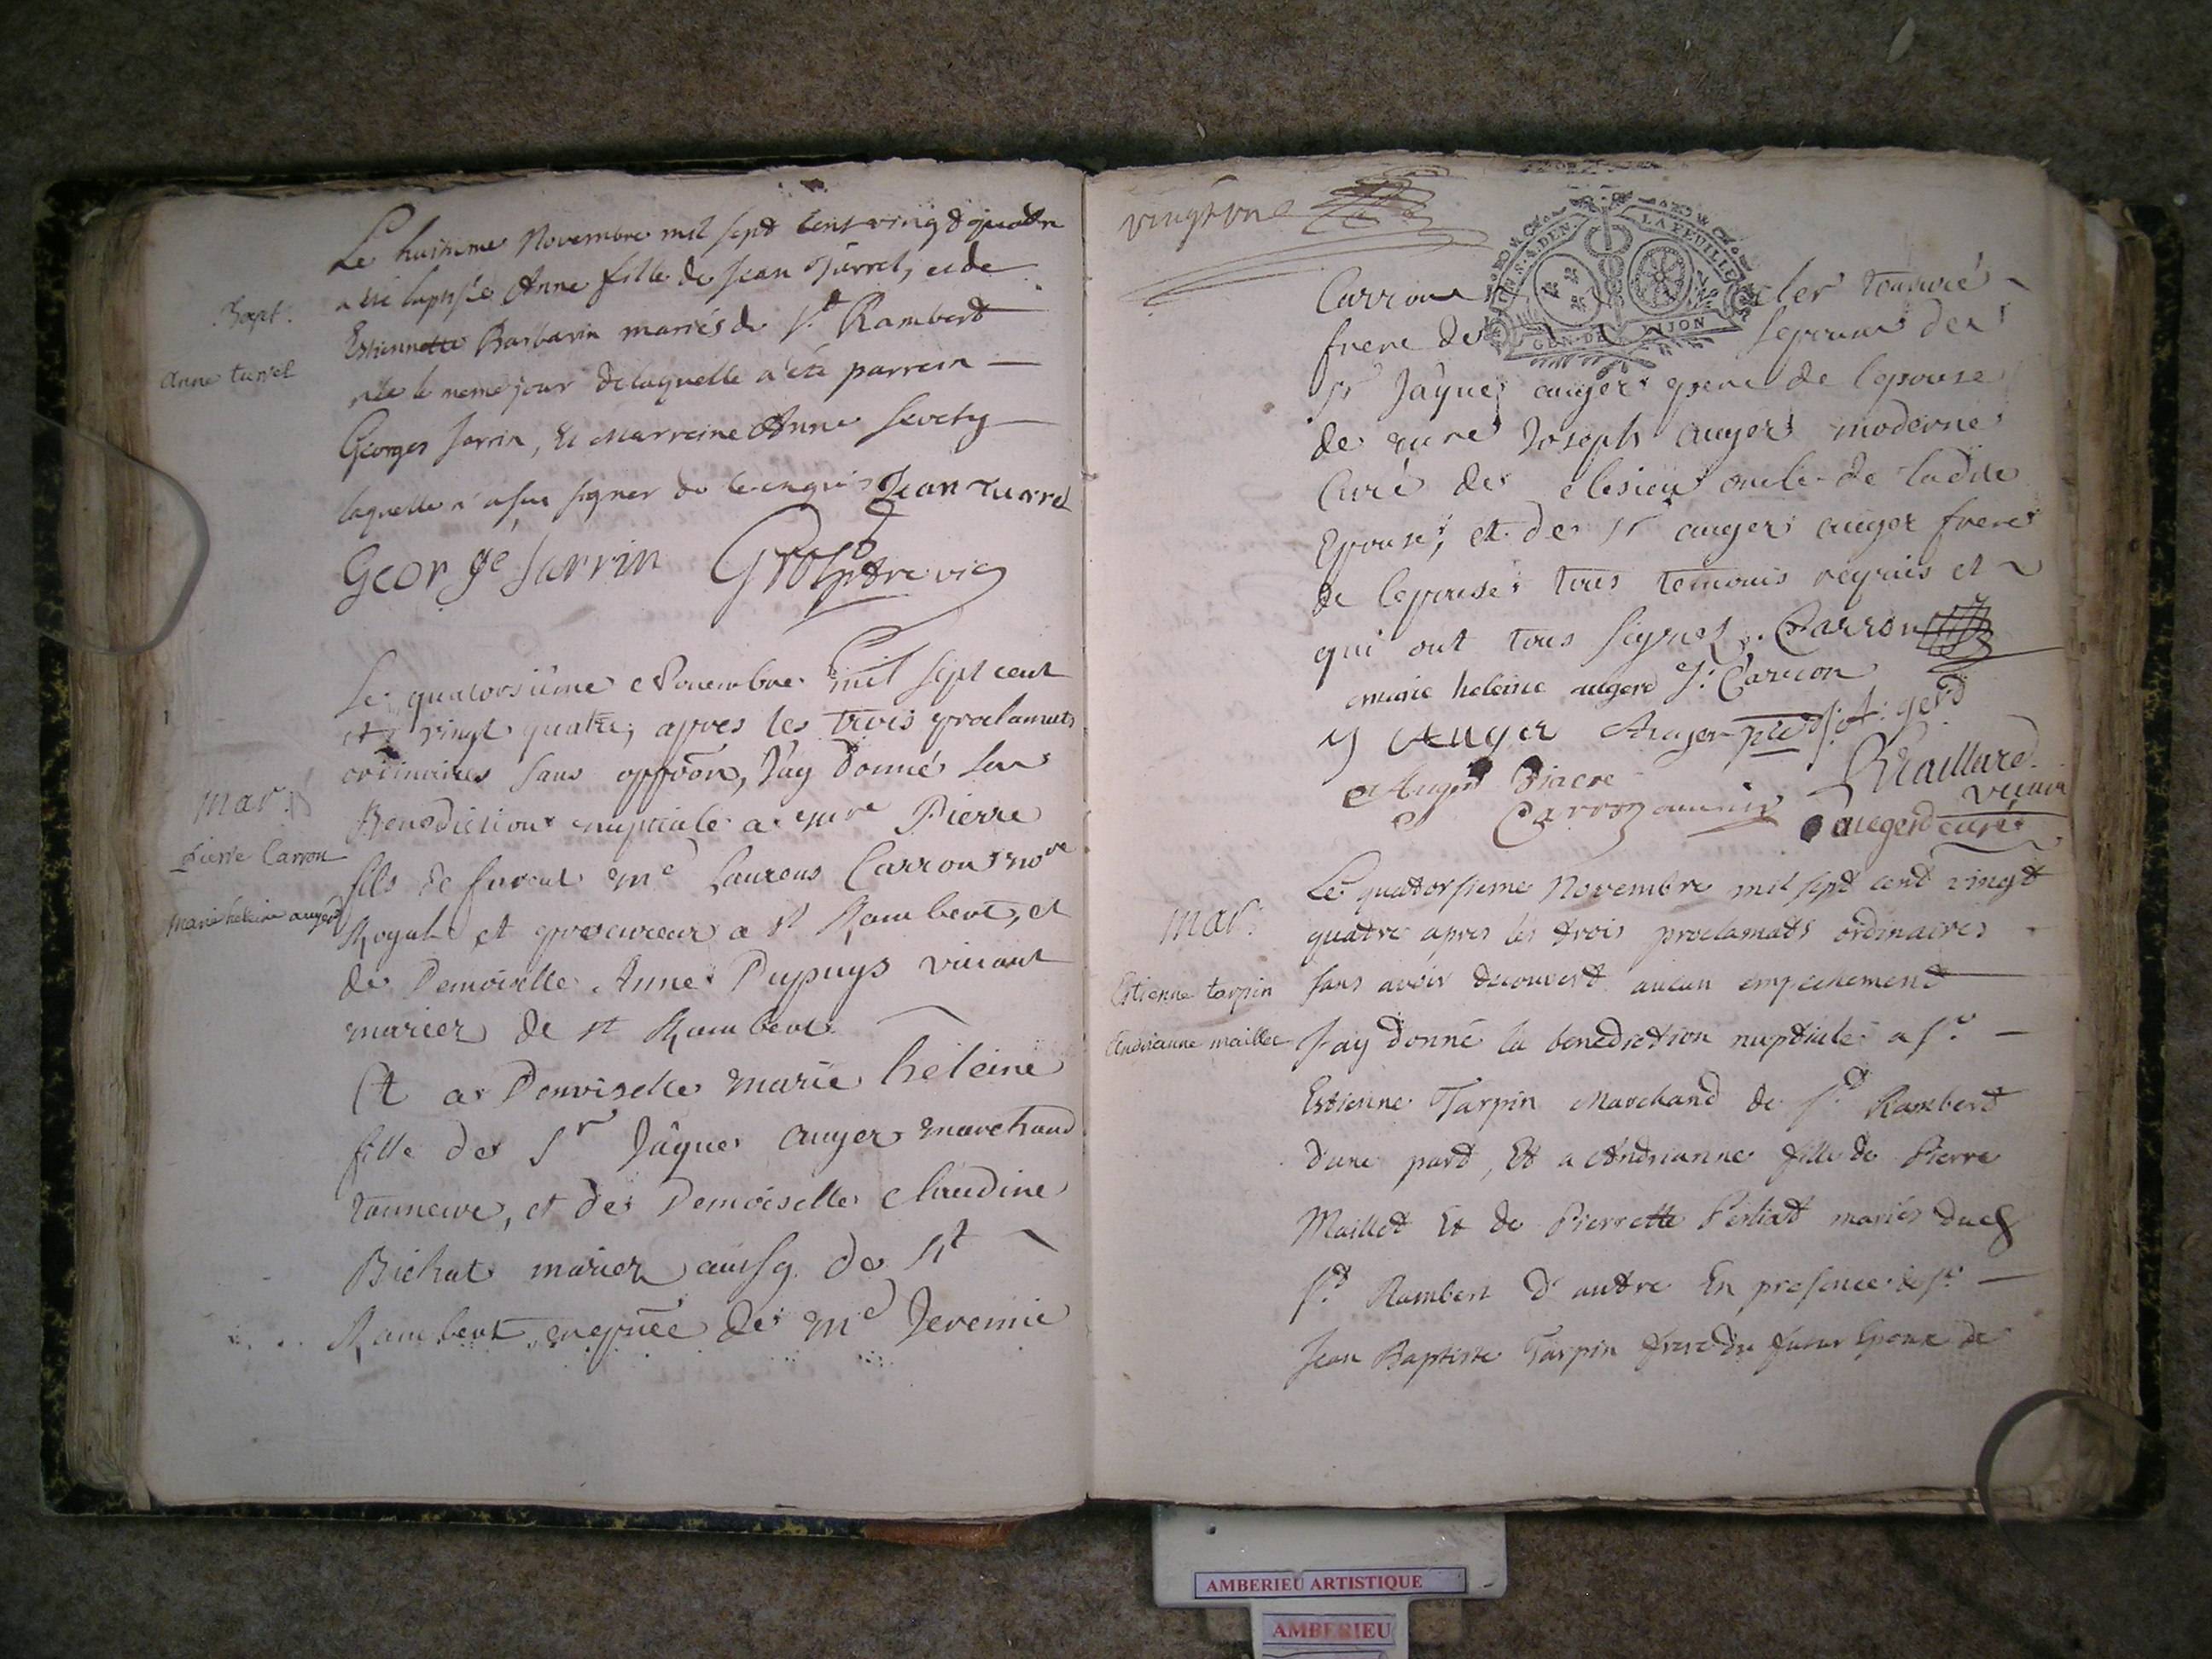 Le huitieme Novembre mil sept cent vingt quatre
Bapt.
a été baptisée Anne fille de Jean Turrel, et de
Estiennette Barbarin mariés de St Rambert
anne turrel
née le meme jour de laquelle a été parrein
Georges Jarrin, Et Marreine Anne
laquelle n'a sçu signer de ce enquis Jean turrel
George Jarrin
Le quatorsiême Novembre mil sept cent
et vingt quatre, apres les trois proclamats
ordinaires sans oppoôn, J'ay donné la
mar:
Benediction nuptiale a mre Pierre
pierre Carron
fils de Me Laurens Carron nore
marie heleine augerd
Royal et procureur a st Rambert, et
de Demoiselle Anne Dupuys vivant
mariez de st Rambert
Et a Demoiselle marie heleine
fille de Sr Jâques auger marchand
tanneur, et de Demoiselle Claudine
Bichat mariez aussy de St
Rambert, en pnce de Me Jeremie
vingt une
GEN. DE DIJON
LA FEUILLE
Carron cler tonsuré
frere de lepoux de
Sr Jâques auger pere de lepouse
de mre Joseph auger moderne
Curé de oncle de ladite
Epouse, et de Sr auger auger frere
de lepouse tous temoins requis et
qui ont tous signez. Carron
marie heleine augerd J. Carron
J Auger
Auger Diacre
Carron
Vicaire
augerd curé
Le quatorsieme Novembre mil sept cent vingt
mar:
quatre apres les trois proclamats ordinaires
Estienne tarpin
sans avoir decouvert aucun empechement
andrianne maillet
J'ay donné la benediction nuptiale a Sr
Estienne Tarpin Marchand de St Rambert
d'une part, Et a Andrianne fille de Pierre
Maillet Et de Pierrette Perliat mariés dud
St Rambert d'autre En presence de Sr
Jean Baptiste Tarpin frere du futur Epoux de
AMBERIEU ARTISTIQUE
AMBERIEU